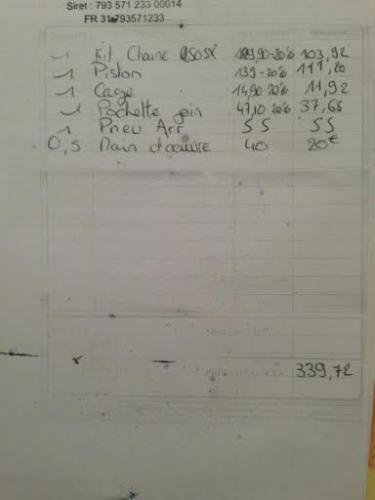 Siret : 793 571 233 00014
FR 31 793571233
1 Kit Chaine 129,90-20% 103,92
1 Piston 139-20% 111,20
1 Cage 14,90-20% 11,92
1 Pochette join 47,10-20% 37,68
1 Pneu Arr 55 55
0,5 Main d'oeuvre 40 20€
339,72